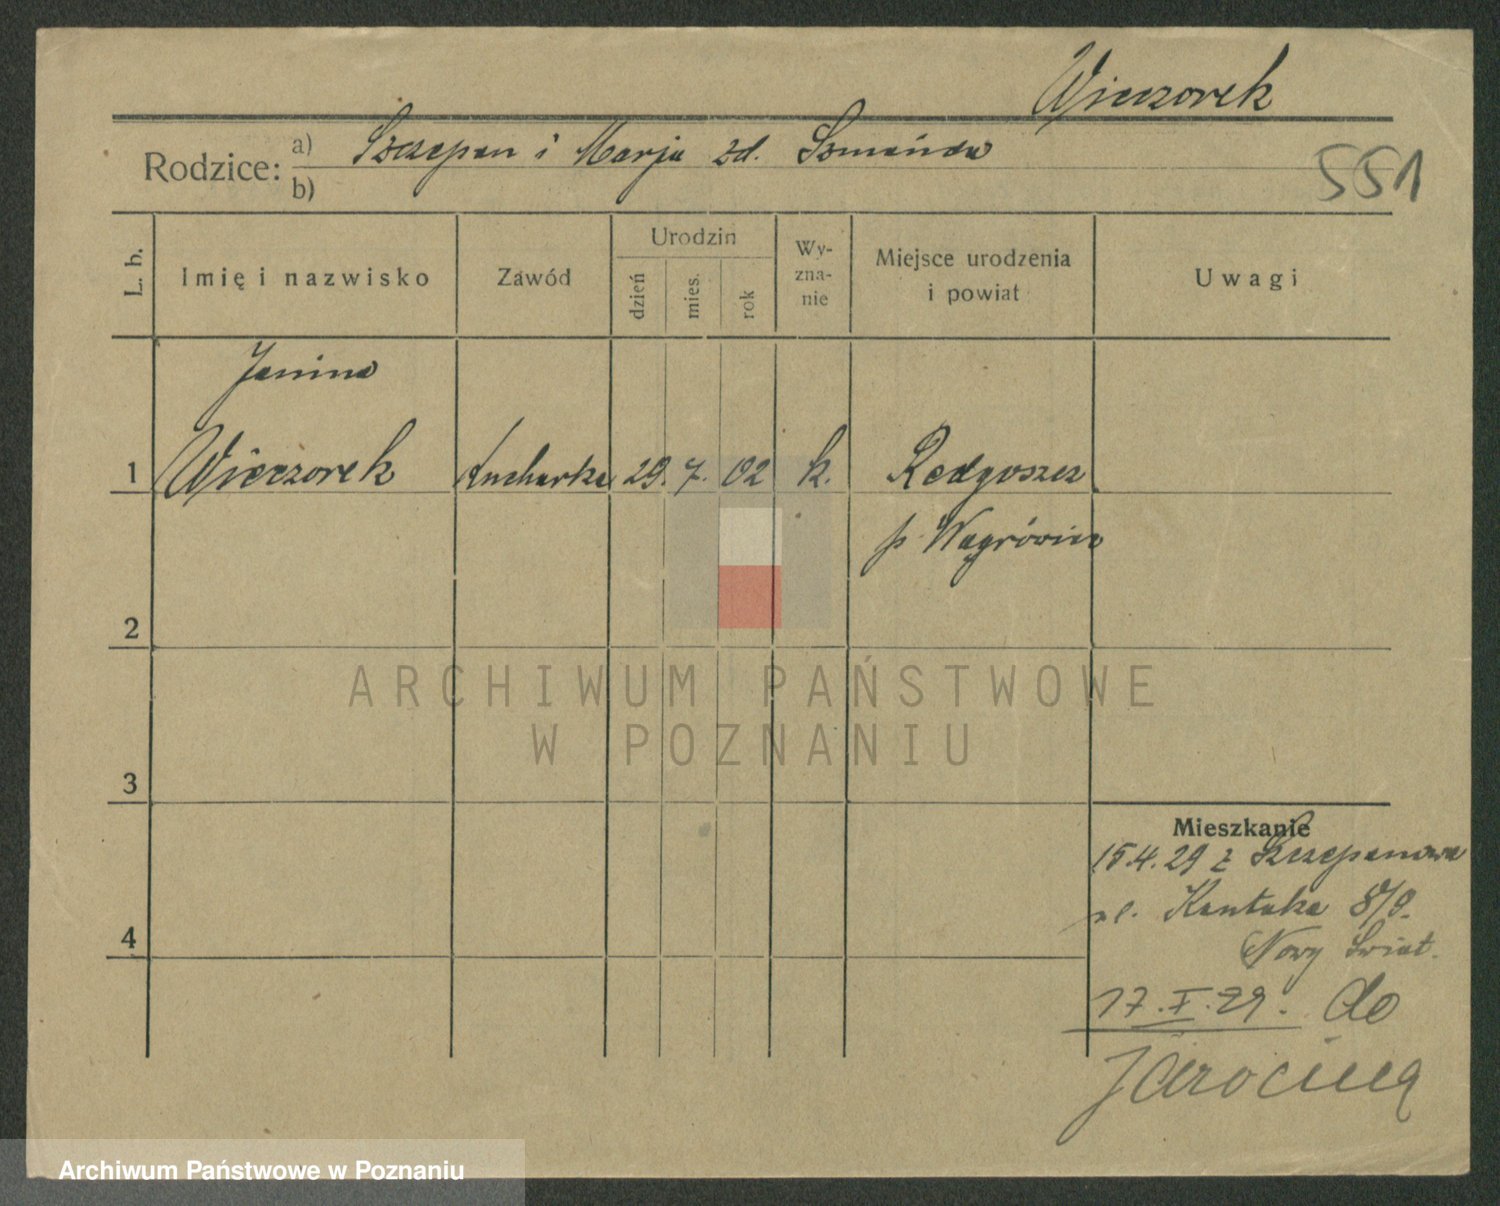 Wieczorek
Rodzice: a) Szczepan i Marja zd. Szmańda
b)
551
L. b.
Imię i nazwisko
Zawód
Urodzin
dzień
mies.
rok
Wy-
zna-
nie
Miejsce urodzenia
i powiat
Uwagi
Janina
1 Wieczorek kucharka 29. 7. 02 k. Redgoszcz
p. Wągrówiec
2
3
4
ARCHIWUM PAŃSTWOWE
W POZNANIU
Mieszkanie
15.4.29 z Szczepanowa
ul. Kantaka 8/9.
Nowy Świat.
17.X.29. do
Jarocina
Archiwum Państwowe w Poznaniu